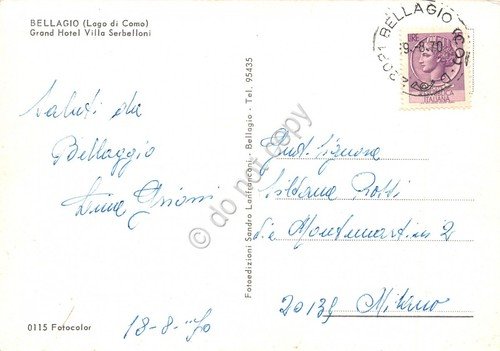 BELLAGIO (Lago di Como)
Grand Hotel Villa Serbelloni
Saluti da
Bellaggio
0115 Fotocolor
18-8-70
Fotoedizioni Sandro Lanfranconi - Bellagio - Tel. 95435
do not copy
22021 BELLAGIO (CO)
LIRE
ITALIANA
Gent. Signora
Via Montemartini 2
20139 Milano